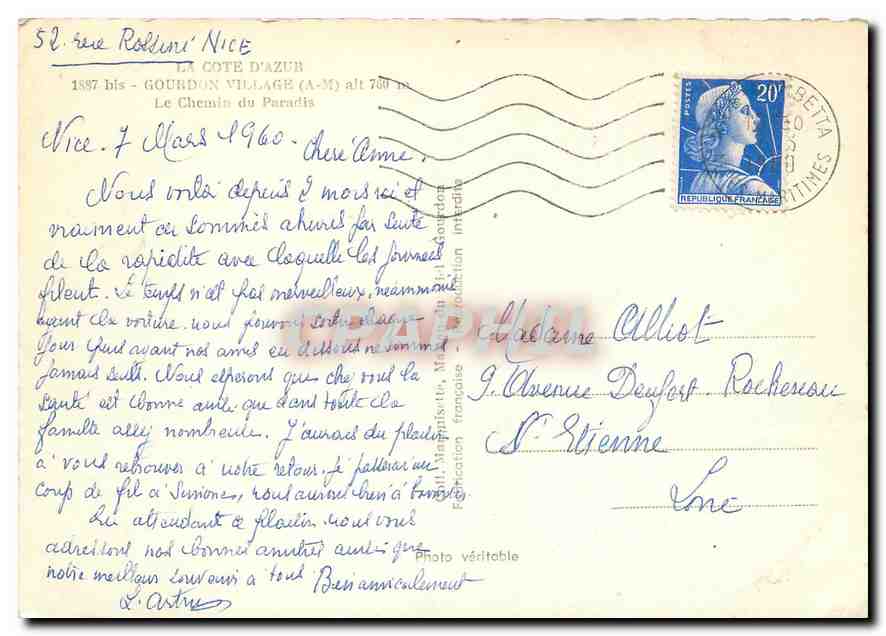 52. rue Rossini NICE
LA COTE D'AZUR
1887 bis - GOURDON VILLAGE (A-M) alt 760 m
Le Chemin du Paradis
Nice. 7 Mars 1960.
Chere Anne.
Nous voilà depuis 2 mois ici et
vraiment ou sommes ahuris par suite
de la rapidite avec laquelle les journees
filent. Le temps n'est pas merveilleux, neammoins
ayant la voiture. nous pouvons sortir chaque
jour puis ayant nos amis en dessous ne sommes
jamais seuls. Nous esperons que chez vous la
santé est bonne ainsi que dans toute la
famille assez nombreuse. J'aurais du plaisir
à vous retrouver à notre retour. je passerai un
coup de fil à Simone, nous aurons bien à
En attendant ce plaisir nous vous
adressons nos bonnes amitiés ainsi que
notre meilleur souvenir a tous Bien amicalement
Coll. Marquisette, Maison du Miel - Gourdon
Fabrication française - Reproduction interdite
CPAPHIL
Photo véritable
POSTES
20F
REPUBLIQUE FRANÇAISE
BETTA
MARITIMES
Madame Alliot
9. Avenue Denfert. Rochereau
St Etienne
Loire